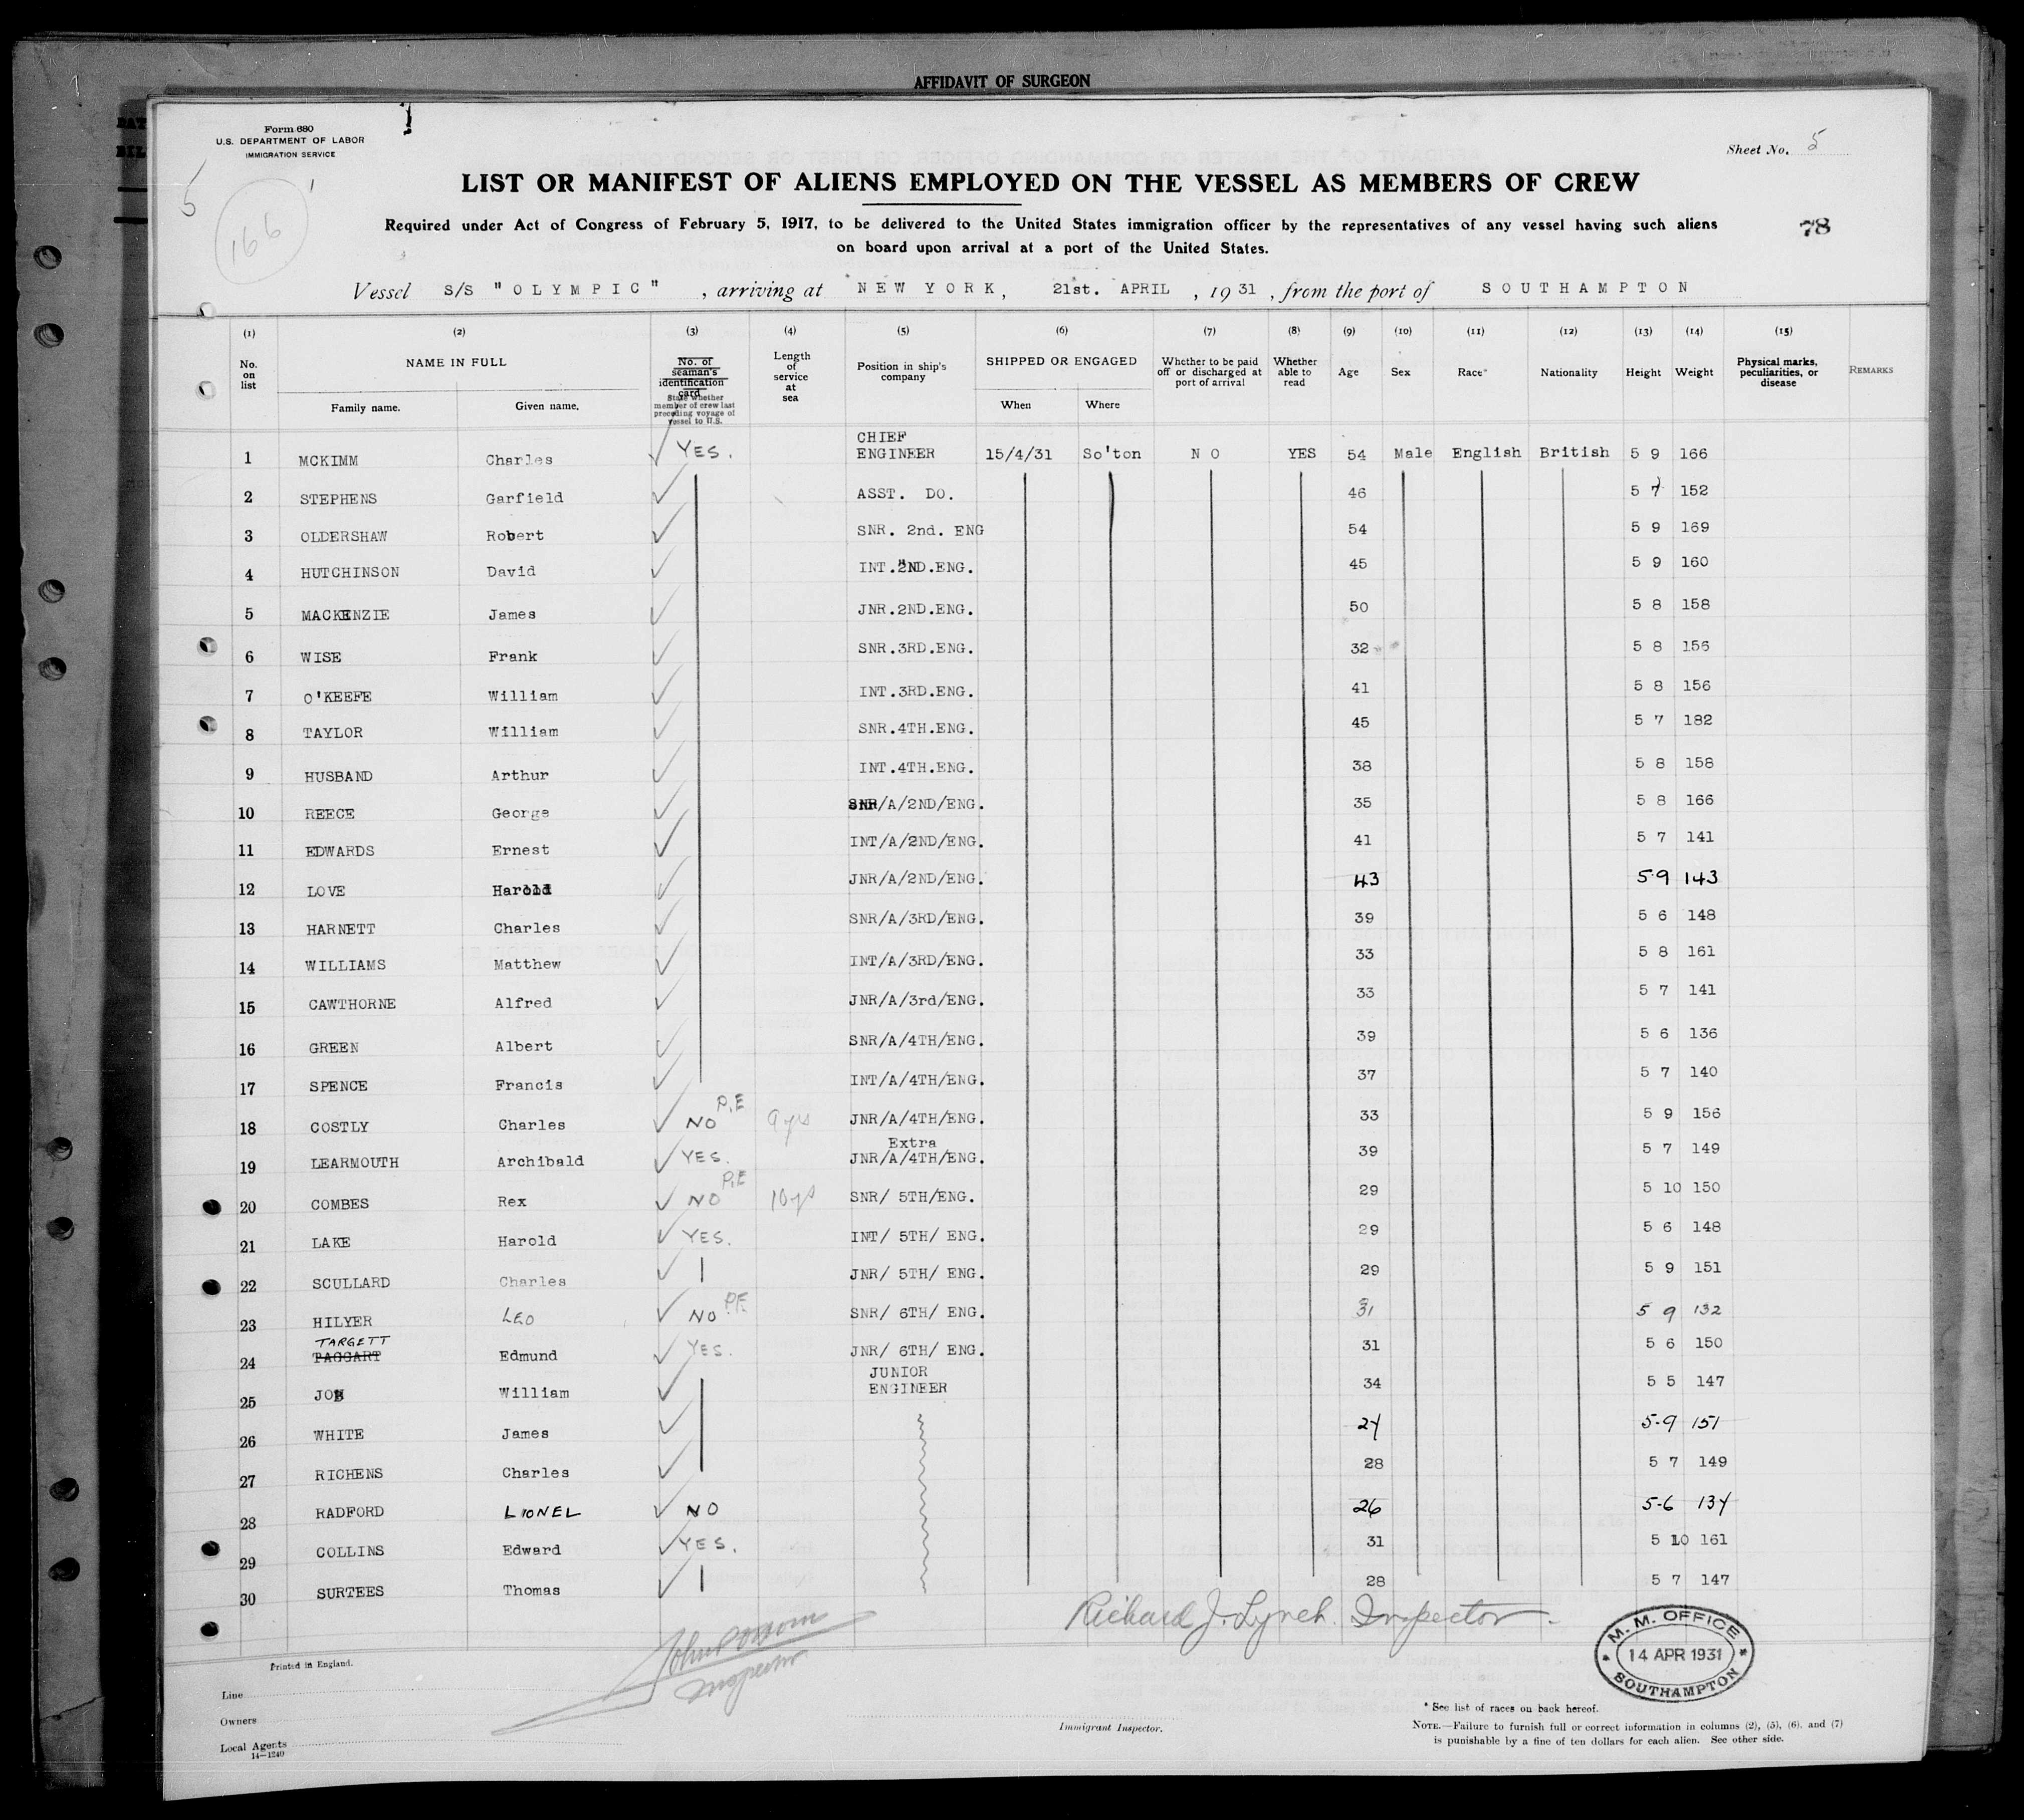 AFFIDAVIT OF SURGEON
Form 680
U.S. DEPARTMENT OF LABOR
IMMIGRATION SERVICE
Sheet No. 5
5
166
LIST OR MANIFEST OF ALIENS EMPLOYED ON THE VESSEL AS MEMBERS OF CREW
Required under Act of Congress of February 5, 1917, to be delivered to the United States immigration officer by the representatives of any vessel having such aliens
on board upon arrival at a port of the United States.
78
Vessel S/S "OLYMPIC", arriving at NEW YORK, 21st. APRIL, 1931, from the port of SOUTHAMPTON
(1) (2) (3) (4) (5) (6) (7) (8) (9) (10) (11) (12) (13) (14) (15)
No. on list
NAME IN FULL
Family name. Given name.
No. of seaman's identification card
State whether member of crew last preceding voyage of vessel to U.S.
Length of service at sea
Position in ship's company
SHIPPED OR ENGAGED
When Where
Whether to be paid off or discharged at port of arrival
Whether able to read
Age Sex Race* Nationality Height Weight
Physical marks, peculiarities, or disease
REMARKS
1 MCKIMM Charles YES. CHIEF ENGINEER 15/4/31 So'ton NO YES 54 Male English British 5 9 166
2 STEPHENS Garfield ASST. DO. 46 5 7 152
3 OLDERSHAW Robert SNR. 2nd. ENG 54 5 9 169
4 HUTCHINSON David INT.2ND.ENG. 45 5 9 160
5 MACKENZIE James JNR.2ND.ENG. 50 5 8 158
6 WISE Frank SNR.3RD.ENG. 32 5 8 156
7 O'KEEFE William INT.3RD.ENG. 41 5 8 156
8 TAYLOR William SNR.4TH.ENG. 45 5 7 182
9 HUSBAND Arthur INT.4TH.ENG. 38 5 8 158
10 REECE George SNR/A/2ND/ENG. 35 5 8 166
11 EDWARDS Ernest INT/A/2ND/ENG. 41 5 7 141
12 LOVE Harold JNR/A/2ND/ENG. 43 5-9 143
13 HARNETT Charles SNR/A/3RD/ENG. 39 5 6 148
14 WILLIAMS Matthew INT/A/3RD/ENG. 33 5 8 161
15 CAWTHORNE Alfred JNR/A/3rd/ENG. 33 5 7 141
16 GREEN Albert SNR/A/4TH/ENG. 39 5 6 136
17 SPENCE Francis INT/A/4TH/ENG. 37 5 7 140
18 COSTLY Charles NO P.E 9 yrs JNR/A/4TH/ENG. 33 5 9 156
19 LEARMOUTH Archibald YES. Extra JNR/A/4TH/ENG. 39 5 7 149
20 COMBES Rex NO P.E 10 yrs SNR/ 5TH/ENG. 29 5 10 150
21 LAKE Harold YES. INT/ 5TH/ ENG. 29 5 6 148
22 SCULLARD Charles JNR/ 5TH/ ENG. 29 5 9 151
23 HILYER LEO NO P.E. SNR/ 6TH/ ENG. 31 5 9 132
24 TARGETT TAGGART Edmund YES. JNR/ 6TH/ ENG. 31 5 6 150
25 William JUNIOR ENGINEER 34 5 5 147
26 WHITE James 24 5-9 151
27 RICHENS Charles 28 5 7 149
28 RADFORD LIONEL NO 26 5-6 134
29 COLLINS Edward YES. 31 5 10 161
30 SURTEES Thomas 28 5 7 147
Richard J. Lynch. Inspector
Inspector
M. M. OFFICE
14 APR 1931
SOUTHAMPTON
Printed in England.
Line
Owners
Local Agents
14—1240
Immigrant Inspector.
* See list of races on back hereof.
NOTE.—Failure to furnish full or correct information in columns (2), (5), (6), and (7)
is punishable by a fine of ten dollars for each alien. See other side.